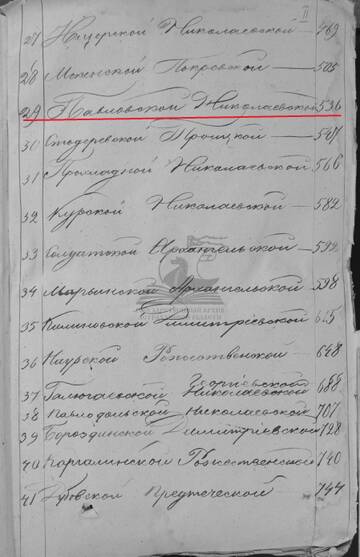 II
27 Ищерской Николаевской — 469
28 Мекенской Покровской — 505
29 Павловской Николаевской 536
30 Стодеревской Троицкой — 547
31 Прохладной Николаевской 566
32 Курской Николаевской — 582
33 Солдатской Архангельской — 592
34 Марьинской Архангельской — 598
35 Димитріевской
36 Наурской Рождественской — 648
Георгіевской
37 Николаевской 688
38 Павлодольской Николаевской 707
39 Бороздинской Димитріевской 728
40 Каргалинской Рождественской 740
41 Дубовской Предтеческой 744
ГОСУДАРСТВЕННЫЙ АРХИВ